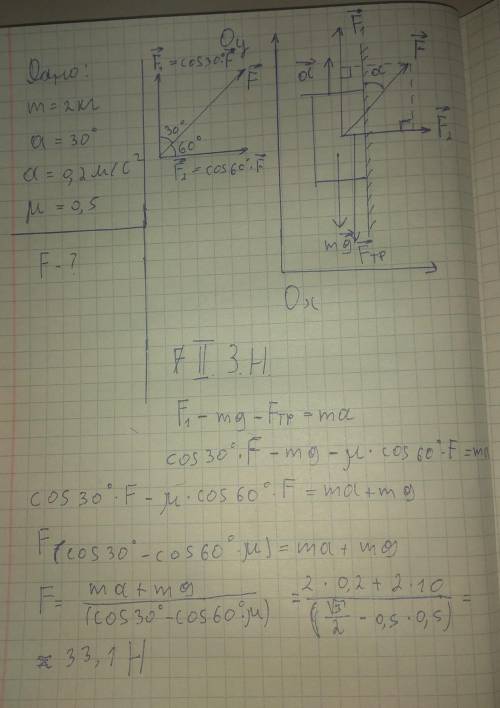 Дано:
m = 2кг
α = 30°
a = 0,2 м/с²
μ = 0,5
F - ?
F₁ = cos30°·F
F
30°
60°
F₂ = cos60°·F
Oy
F₁
a
α
F
F₂
mg
Fтр
Ox
II З.Н.
F₁ - mg - Fтр = ma
cos30°·F - mg - μ·cos60°·F = ma
cos30°·F - μ·cos60°·F = ma + mg
F(cos30° - cos60°·μ) = ma + mg
F = (ma + mg)/(cos30° - cos60°·μ) = (2·0,2 + 2·10)/((√3/2 - 0,5·0,5) =
≈ 33,1 Н